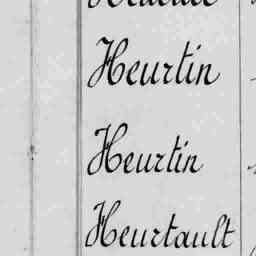 Heurtin
Heurtin
Heurtault